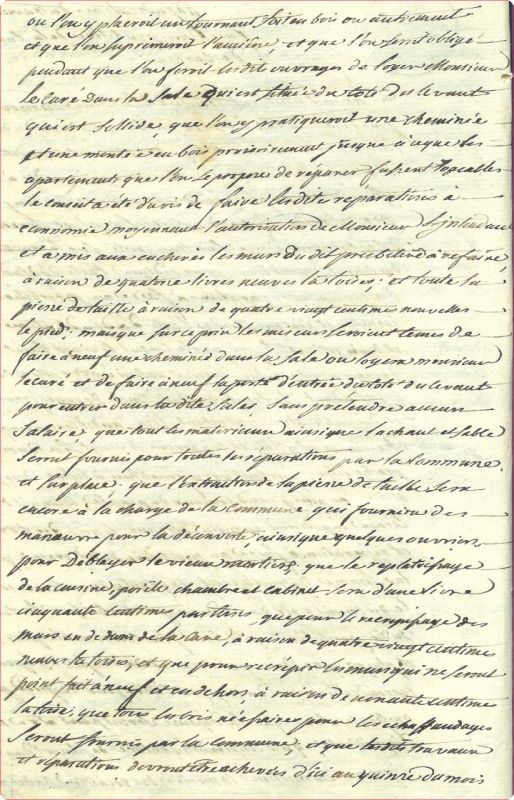 ou l'on y placeroit un tournant soit en bois ou autrement
et que l'on suprimeroit l'ancienne, et que l'on seroit obligé
pendant que l'on feroit lesdits ouvrages de loger Monsieur
le Curé dans la Sale qui est située du coté du levant
qui est solide, que l'on y pratiqueroit une cheminée
et une montée en bois provisoirement jusque à ce que les
apartements que l'on se propose de réparer fussent logeables
le conseil a été d'avis de faire lesdites réparations à
economie moyennant l'autorisation de Monsieur L'intendant
et a mis aux encheres les murs du dit presbitere à refaire,
à raison de quatorze livres neuves la toise; et toute la
pierre de taille à raison de quatre vingt centimes nouvelles
le pied; mais que sur ce prix les miseurs seroient tenus de
faire à neuf une cheminée dans la Sale ou logera monsieur
le curé et de faire à neuf la porte d'entrée du coté du levant
pour entrer dans la dite Sales Sans prétendre aucun
Salaire, que tout les materieaux ainsi que la chaut et sable
Seront fournis pour toutes les réparations par la Commune.
et sur place; que l'extraction de la pierre de taille Sera
encore à la charge de la Commune qui fournira des
manœuvre pour la découverte, ainsi que quelques ouvriers
pour Déblayer le vieux mortier; que le replatrissage
de la cuisine, poile chambre et cabinet Sera d'une livre
cinquante centimes par toises, que pour le recrepissage des
murs en dedans de la Cave, à raison de quatre vingt centimes
neuves la toise, et que pour recrépir les murs qui ne seront
point fait à neuf et en dehors, à raison de nonante centimes
la toise; que tous les bois nécessaires pour les echaffaudages
Seront fournis par la Commune, et que lesdits travaux
et réparations devront être achevées d'ici au quinze du mois